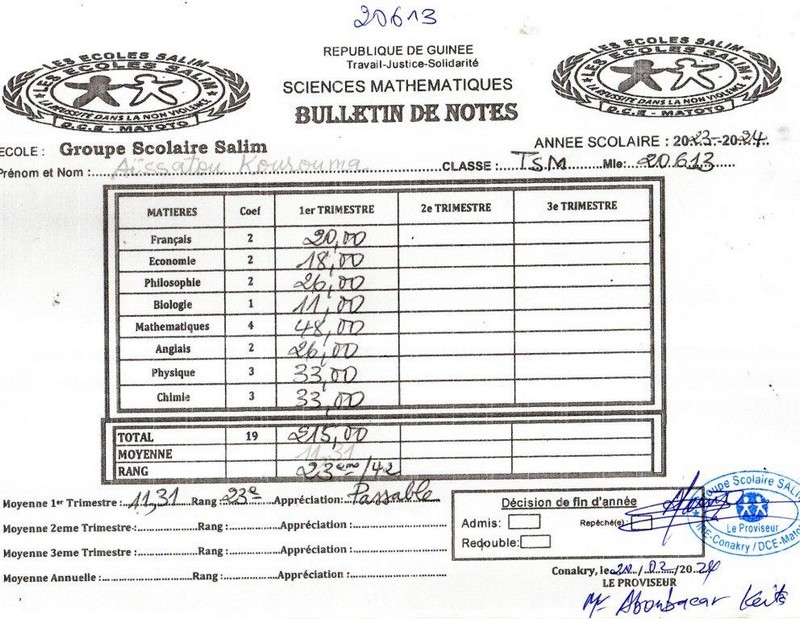 20613
REPUBLIQUE DE GUINEE
Travail-Justice-Solidarité
SCIENCES MATHEMATIQUES
BULLETIN DE NOTES
LES ECOLES SALIM
LES ECOLES SALIM
LA REUSSITE DANS LA NON VIOLENCE
D.C.E - MATOTO
LES ECOLES SALIM
LES ECOLES SALIM
LA REUSSITE DANS LA NON VIOLENCE
D.C.E - MATOTO
ECOLE : Groupe Scolaire Salim ANNEE SCOLAIRE : 2023-2024
Prénom et Nom : Aïssatou Kourouma CLASSE : TSM Mle: 20613
MATIERES Coef 1er TRIMESTRE 2e TRIMESTRE 3e TRIMESTRE
Français 2 20,00
Economie 2 18,00
Philosophie 2 26,00
Biologie 1 11,00
Mathematiques 4 48,00
Anglais 2 26,00
Physique 3 33,00
Chimie 3 33,00
TOTAL 19 215,00
MOYENNE 11,31
RANG 23eme/42
Moyenne 1er Trimestre : 11,31 Rang : 23e Appréciation : Passable
Moyenne 2eme Trimestre : Rang : Appréciation :
Moyenne 3eme Trimestre : Rang : Appréciation :
Moyenne Annuelle : Rang : Appréciation :
Décision de fin d'année
Admis: Repêché(e)
Redouble:
Groupe Scolaire SALI
Le Proviseur
IRE-Conakry / DCE-Mato
Conakry, le 20/02/2024
LE PROVISEUR
Mr Aboubacar Keita